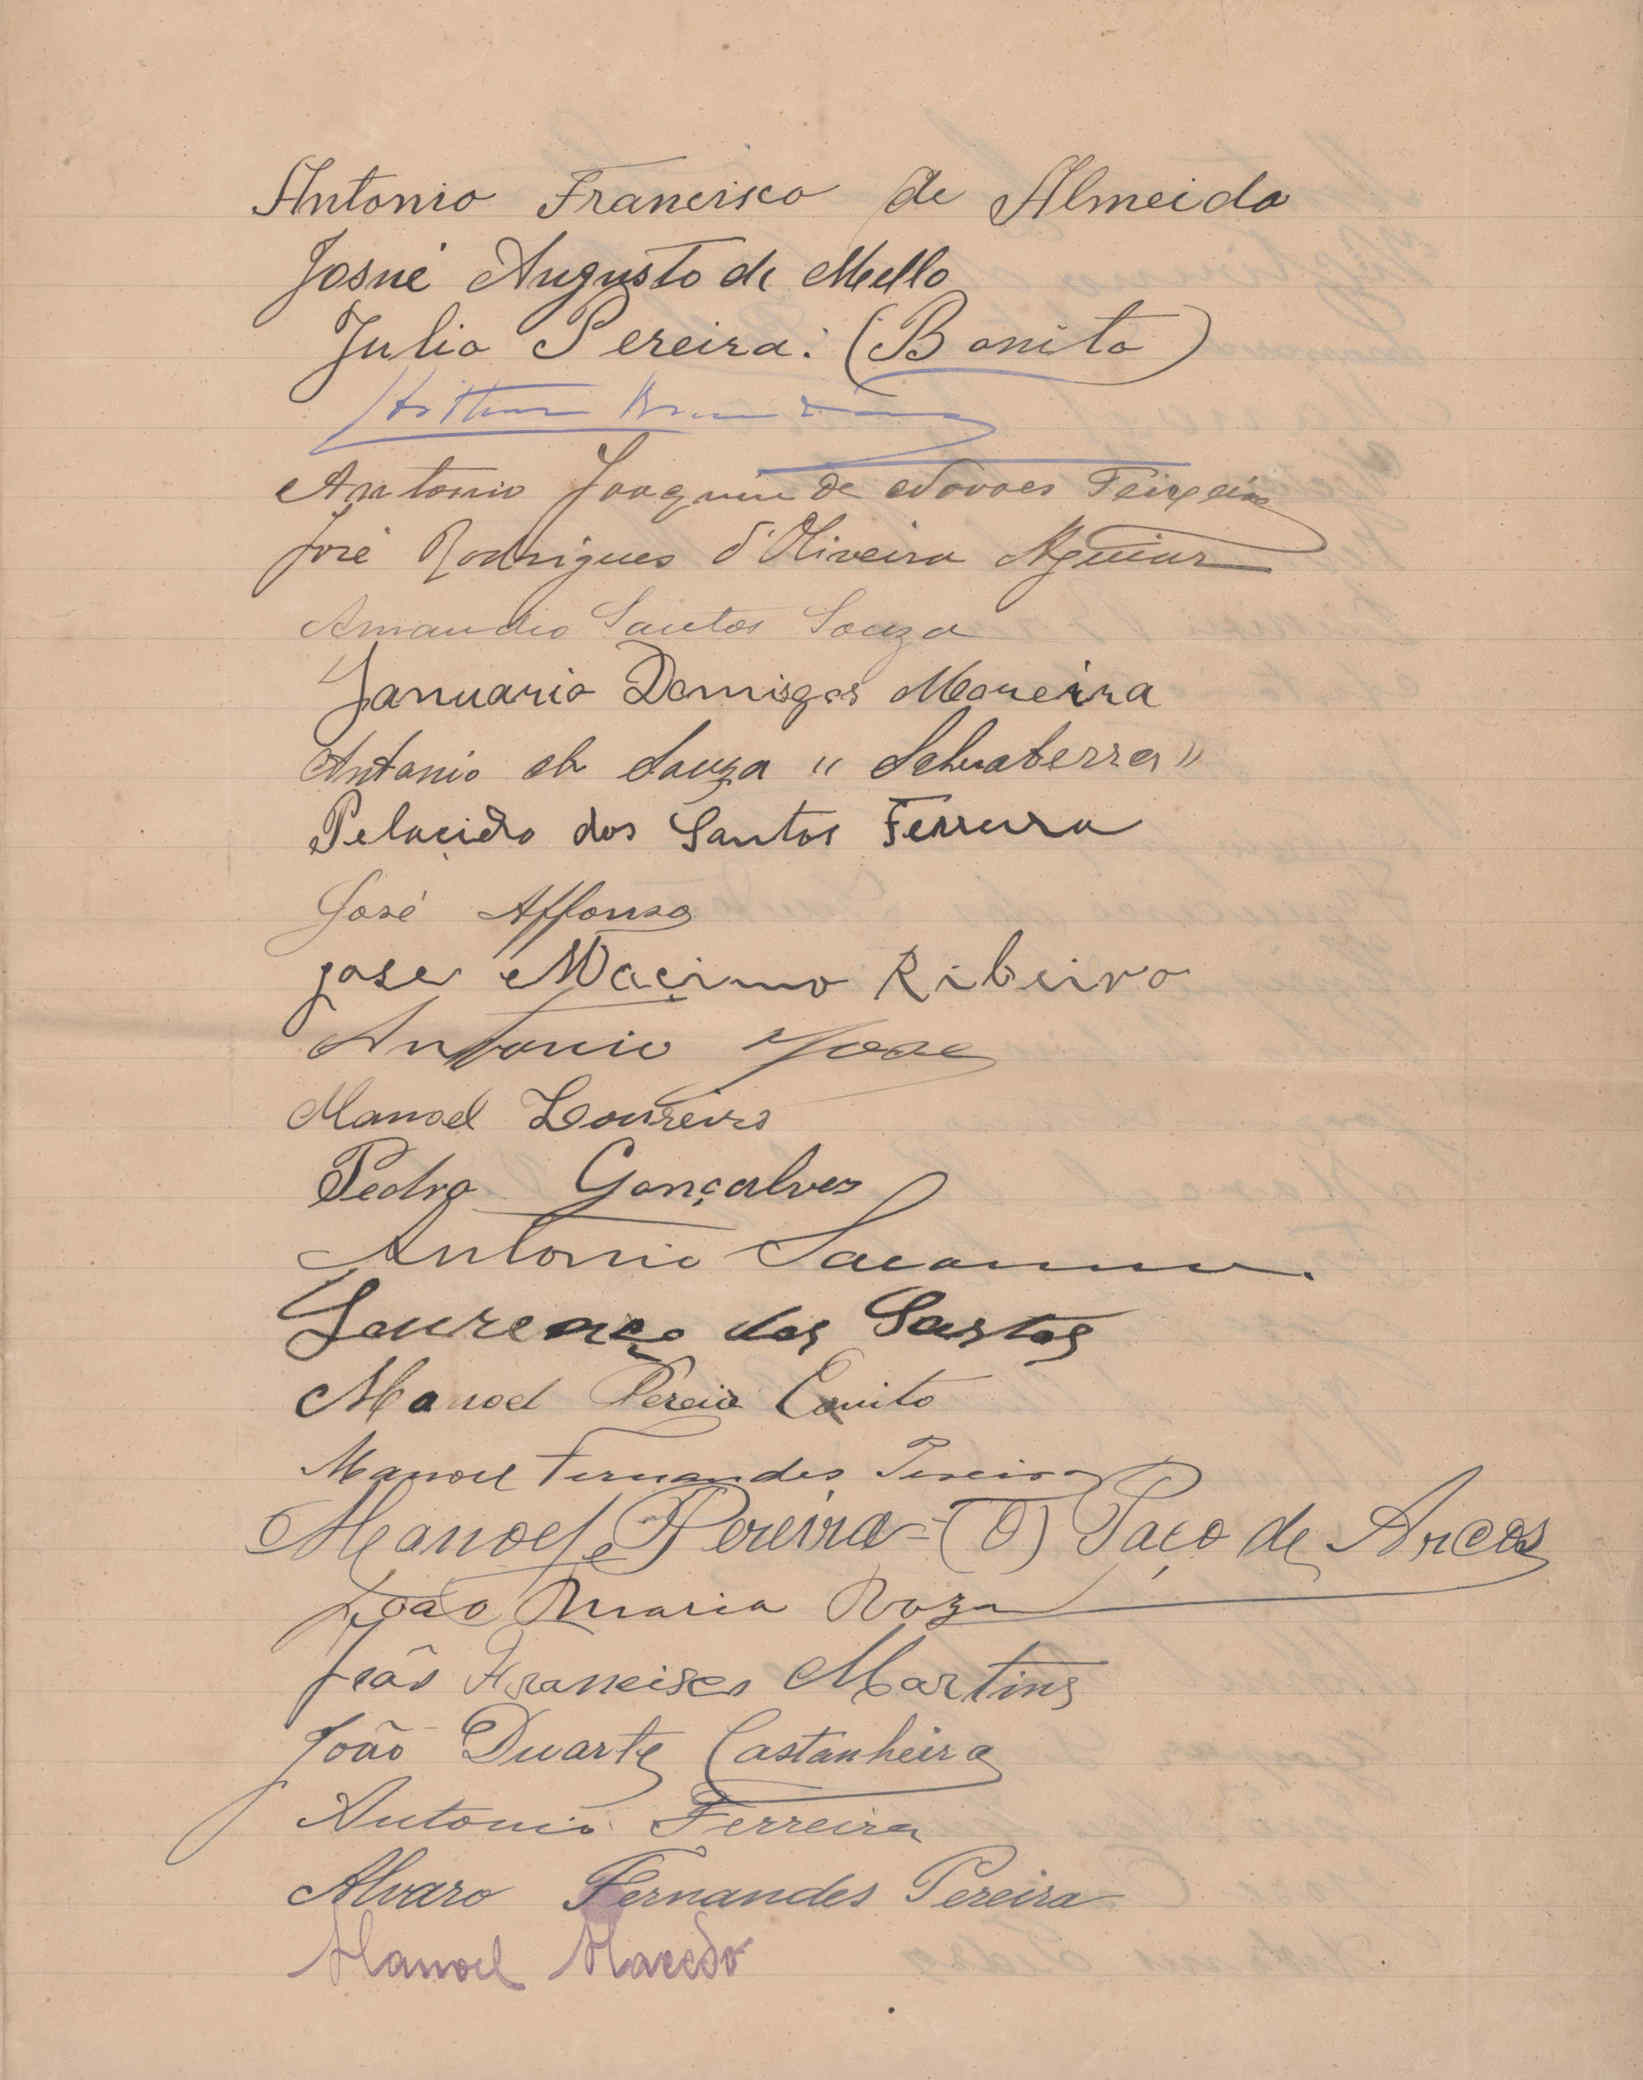 Antonio Francisco de Almeida
Josué Augusto de Mello
Julio Pereira: (Bonito)
Arthur
Antonio Joaquim de Novaes Teixeira
José Rodrigues d'Oliveira Aguiar
Amandio Santos Souza
Januario Domisgos Moreira
Antonio de Souza "Selvaterra"
Pelacido dos Santos Ferreira
José Affonso
jose Macimo Ribeiro
Antonio Jose
Manoel Loureiro
Pedro Gonçalves
Antonio
Lourenço dos Santos
Manoel Pereia
Manoel Fernandes Pereira
Manoel Pereira = (O) Paço de Arcos
João Maria Roza
João Francisco Martins
João Duarte Castanheira
Antonio Ferreira
Alvaro Fernandes Pereira
Manoel Macedo